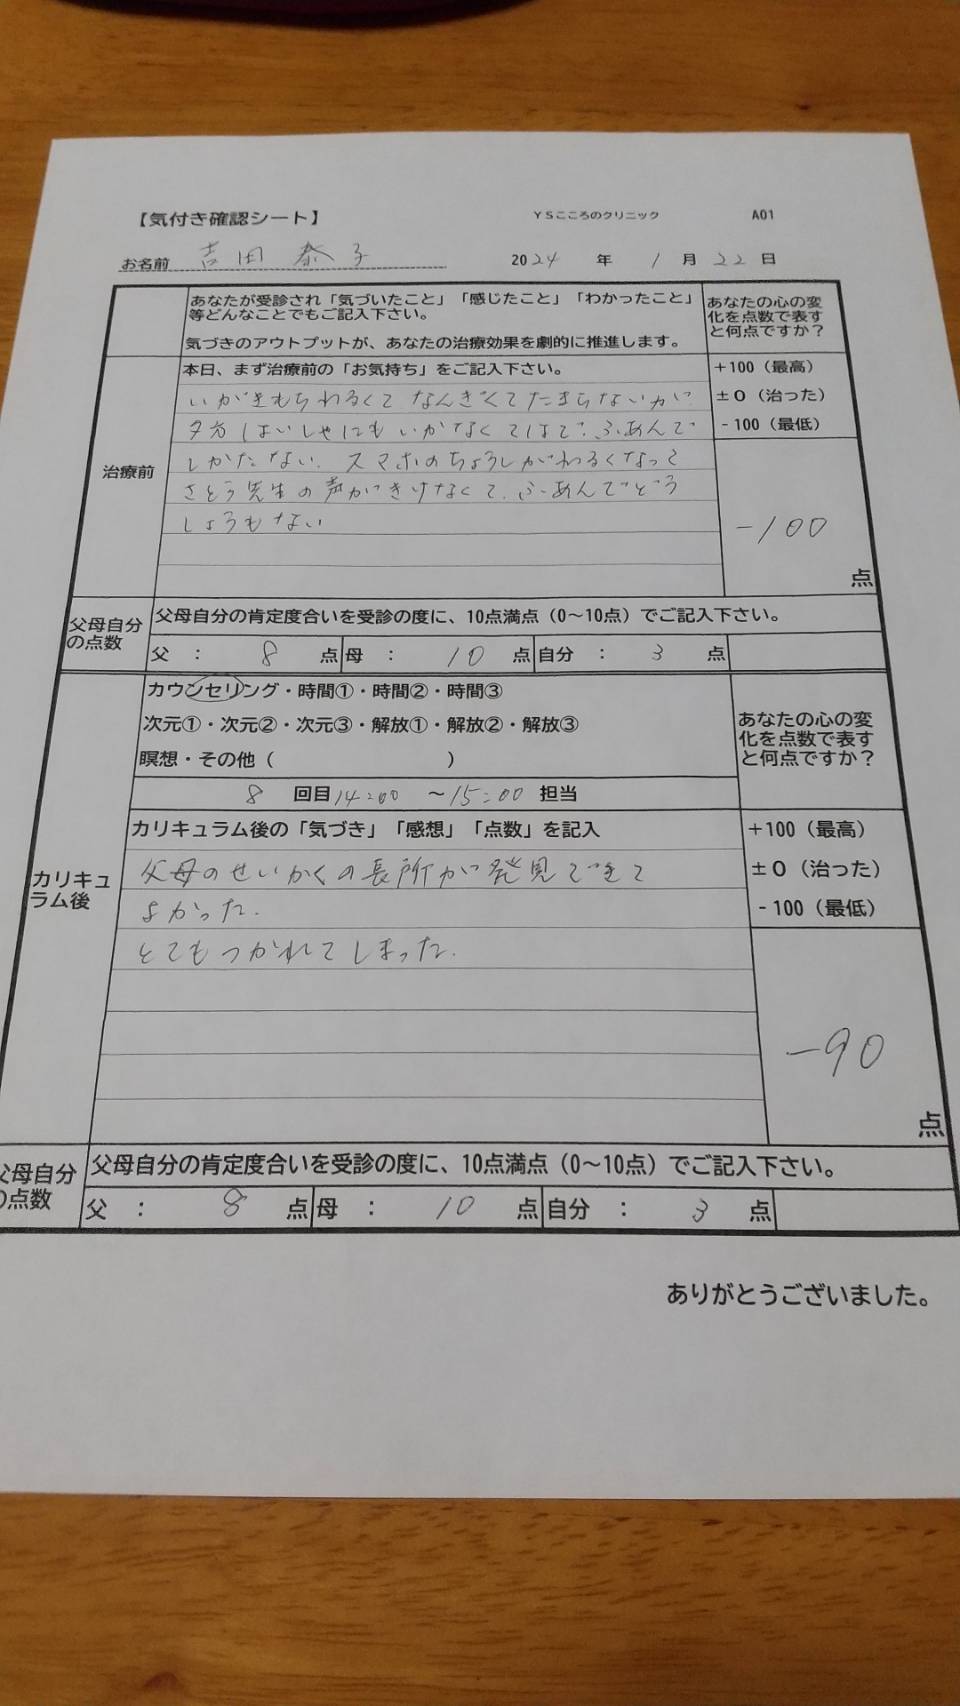 【気付き確認シート】 YSこころのクリニック A01
お名前 吉田 泰子 2024 年 1 月 22 日
あなたが受診され「気づいたこと」「感じたこと」「わかったこと」
等どんなことでもご記入下さい。
気づきのアウトプットが、あなたの治療効果を劇的に推進します。
あなたの心の変
化を点数で表す
と何点ですか？
治療前
本日、まず治療前の「お気持ち」をご記入下さい。
いがきもちわるくてなんぎくてたまらないが、
夕方はいしゃにもいかなくてはで、ふあんで
しかたない。スマホのちょうしがわるくなって
さとう先生の声がきけなくて、ふあんでどう
しょうもない
+100（最高）
±0（治った）
-100（最低）
-100
点
父母自分
の点数
父母自分の肯定度合いを受診の度に、10点満点（0〜10点）でご記入下さい。
父 ： 8 点 母 ： 10 点 自分 ： 3 点
カリキュ
ラム後
カウンセリング・時間①・時間②・時間③
次元①・次元②・次元③・解放①・解放②・解放③
瞑想・その他（ ）
8 回目 14:00 〜15:00 担当
あなたの心の変
化を点数で表す
と何点ですか？
カリキュラム後の「気づき」「感想」「点数」を記入
父母のせいかくの長所が発見できて
よかった。
とてもつかれてしまった。
+100（最高）
±0（治った）
-100（最低）
-90
点
父母自分
の点数
父母自分の肯定度合いを受診の度に、10点満点（0〜10点）でご記入下さい。
父 ： 8 点 母 ： 10 点 自分 ： 3 点
ありがとうございました。